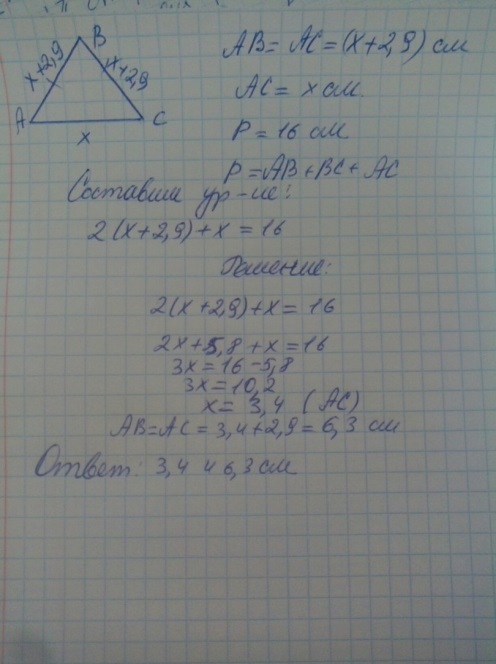 B
x+2,9
x+2,9
A
C
x
AB = AC = (x+2,9) см
AC = x см.
P = 16 см
P = AB + BC + AC
Составим ур-ие:
2(x+2,9)+x = 16
Решение:
2(x+2,9)+x = 16
2x+5,8+x = 16
3x = 16-5,8
3x = 10,2
x = 3,4 (AC)
AB = AC = 3,4+2,9 = 6,3 см
Ответ: 3,4 и 6,3 см